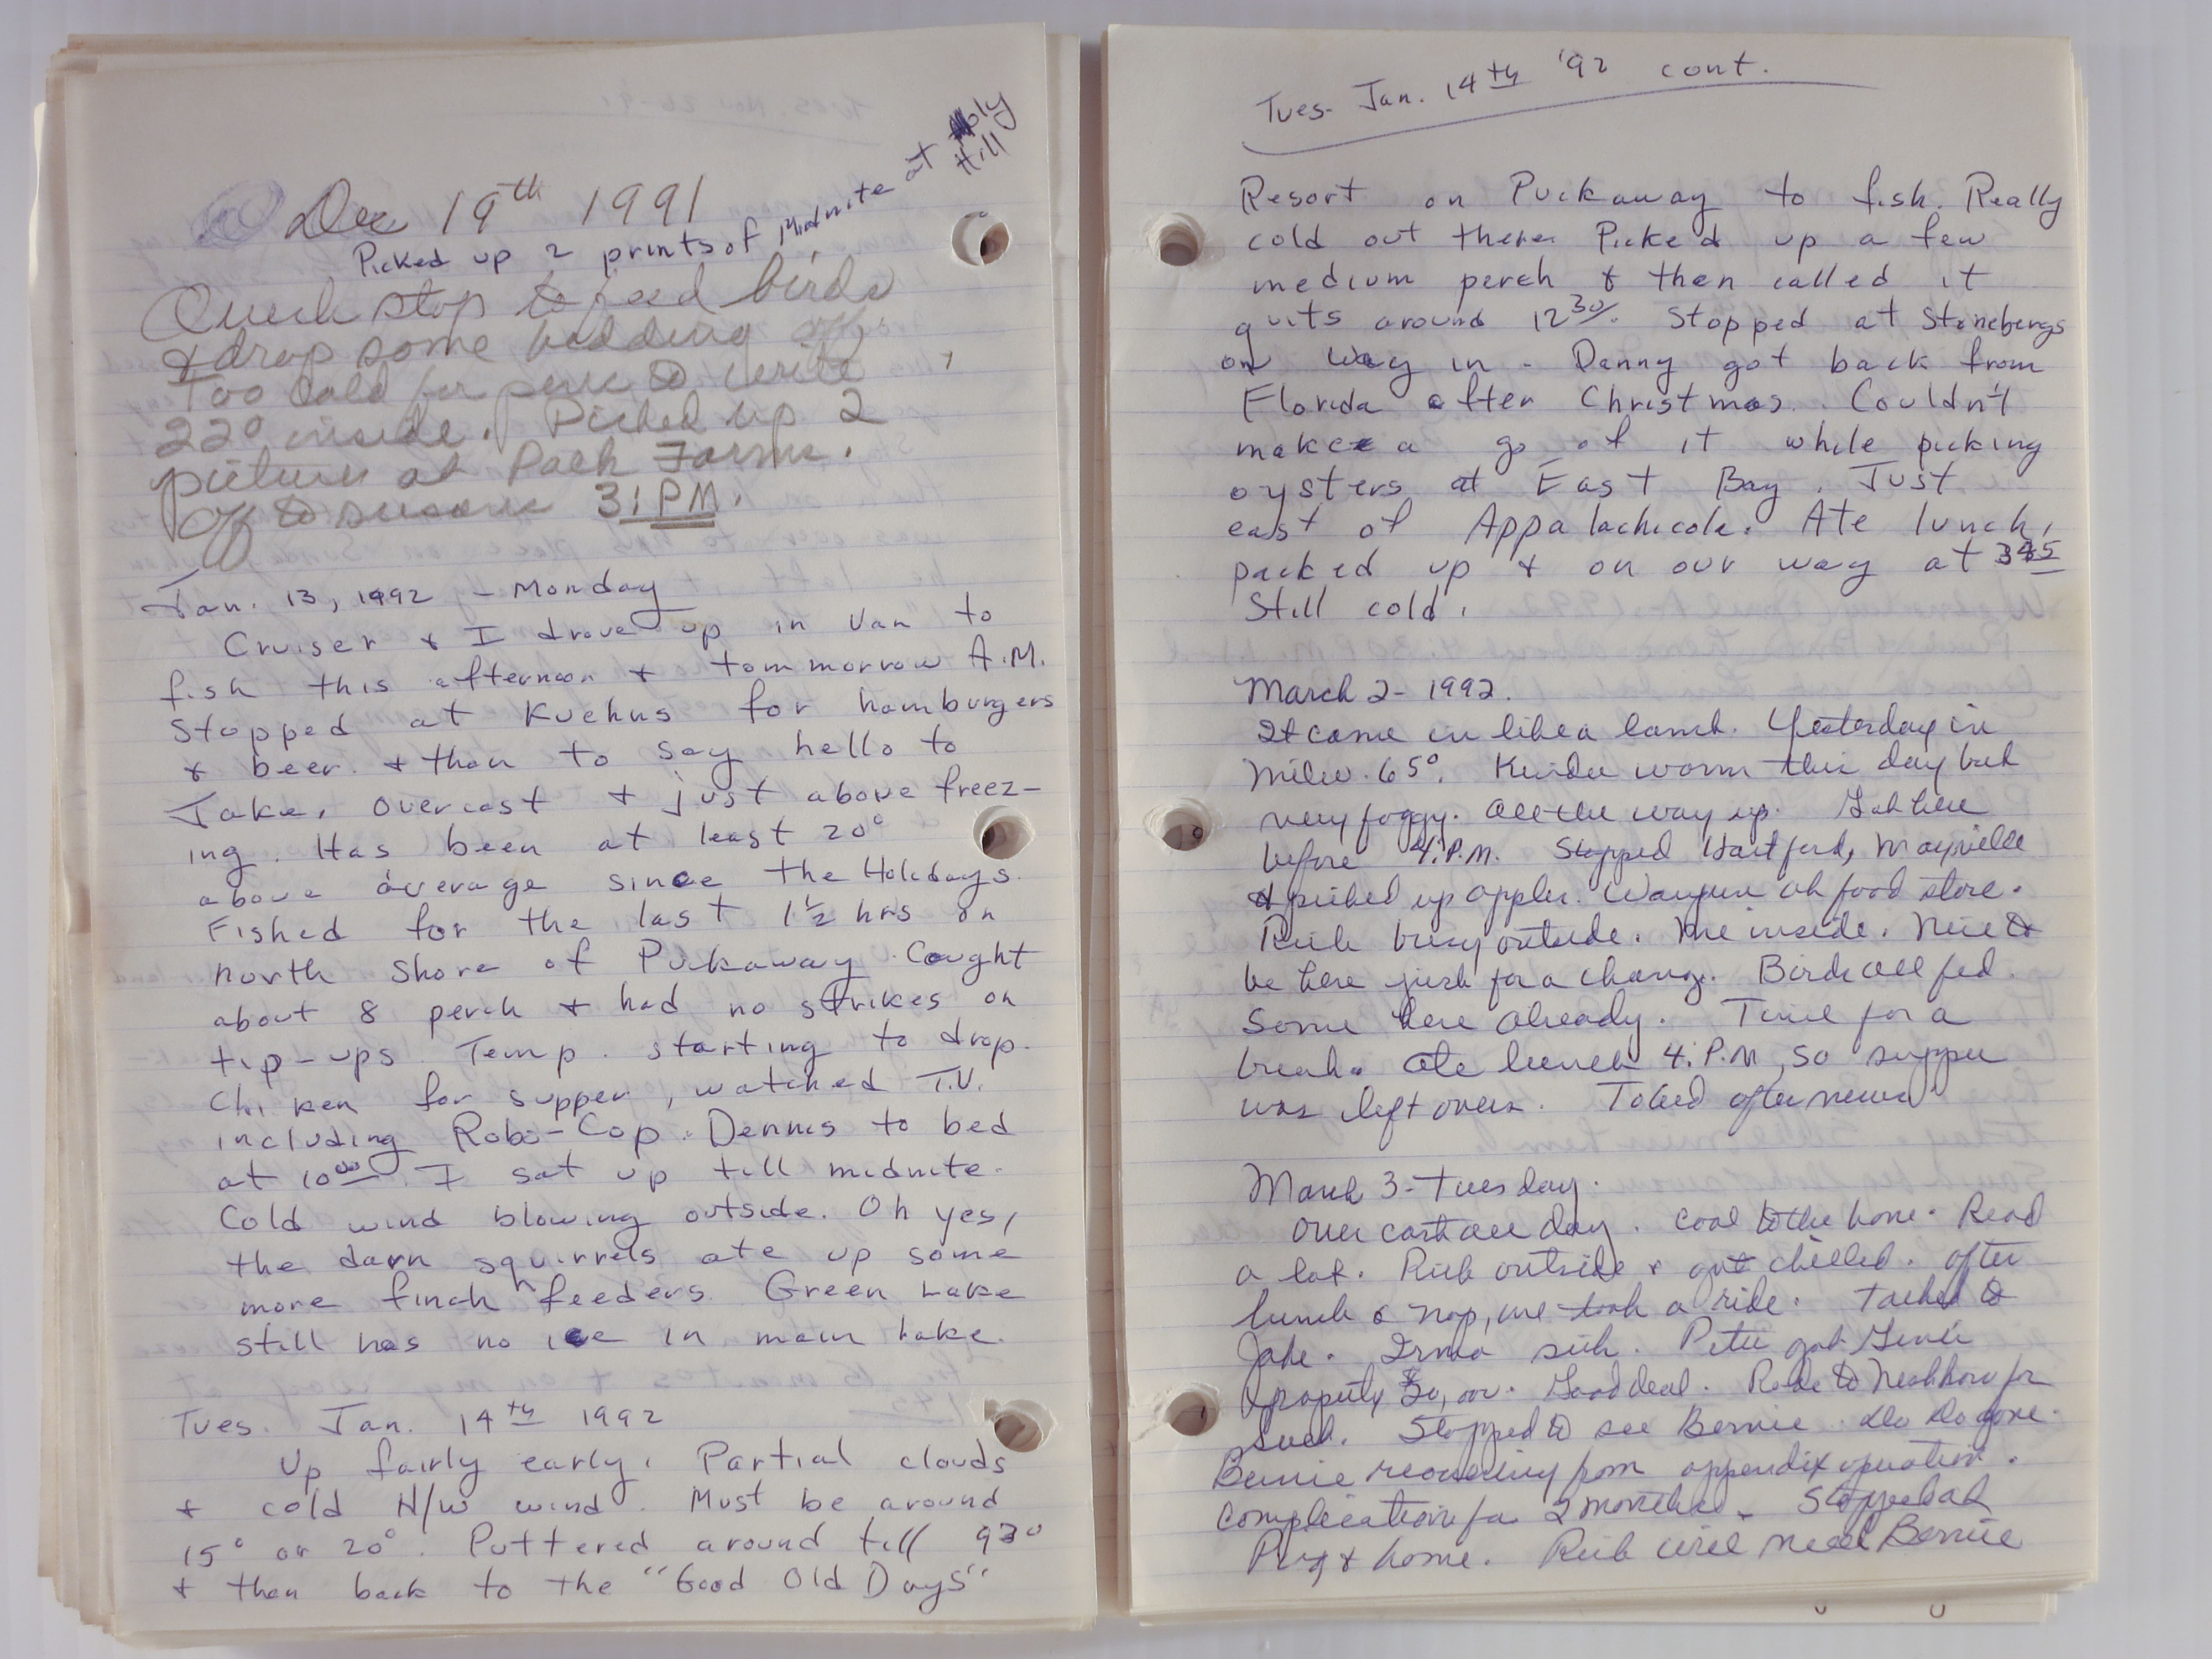 Dec 19th 1991
Picked up 2 prints of Midnite at Holy Hill
Quick stop to feed birds
& drop some bedding off.
Too cold for pen to write
22° inside. Picked up 2
pictures at Park Farms.
Off to 3:PM.
Jan. 13, 1992 - Monday
Cruiser & I drove up in Van to
fish this afternoon & tommorrow A.M.
Stopped at Kuehns for hamburgers
& beer. & then to say hello to
Jake. Overcast & just above freez-
ing. Has been at least 20°
above average since the Holidays.
Fished for the last 1½ hrs on
north shore of Puckaway. Caught
about 8 perch & had no strikes on
tip-ups. Temp. starting to drop.
Chicken for supper, watched T.V.
including Robo-Cop. Dennis to bed
at 10 00. I sat up till midnite.
Cold wind blowing outside. Oh yes,
the darn squirrels ate up some
more finch feeders. Green Lake
still has no ice in main lake.
Tues. Jan. 14th 1992
Up fairly early. Partial clouds
& cold N/W wind. Must be around
15° or 20°. Puttered around till 930
& then back to the "Good Old Days"
Tues. Jan. 14th '92 cont.
Resort on Puckaway to fish. Really
cold out there. Picked up a few
medium perch & then called it
quits around 12 30. Stopped at Stonebergs
on way in - Danny got back from
Florida after Christmas. Couldn't
make a go of it while picking
oysters at East Bay. Just
east of Appalachicola. Ate lunch,
packed up & on our way at 345
Still cold.
March 2 - 1992.
It came in like a lamb. Yesterday in
Milw. 65°. Kinda warm this day but
very foggy. All the way up. Got here
before 4:P.M. Stopped Hartford, Mayville
& picked up apples. Waupun at food store.
Rich busy outside. Me inside. Nice to
be here just for a change. Birds all fed.
Some here already. Time for a
break. Ate lunch 4:P.M, so supper
was left overs. To bed after news.
March 3 - Tuesday.
Over cast all day. Cool to the bone. Read
a lot. Rich outside & got chilled. After
lunch & nap, we took a ride. Talked to
Jake. Irma sick. Pete got
property Good deal. Rode to Neshkoro for
Stopped to see Bernie. gone.
Bernie recovering from appendix operation.
Complications for 2 months. Stopped at
& home. Rich will need Bernie